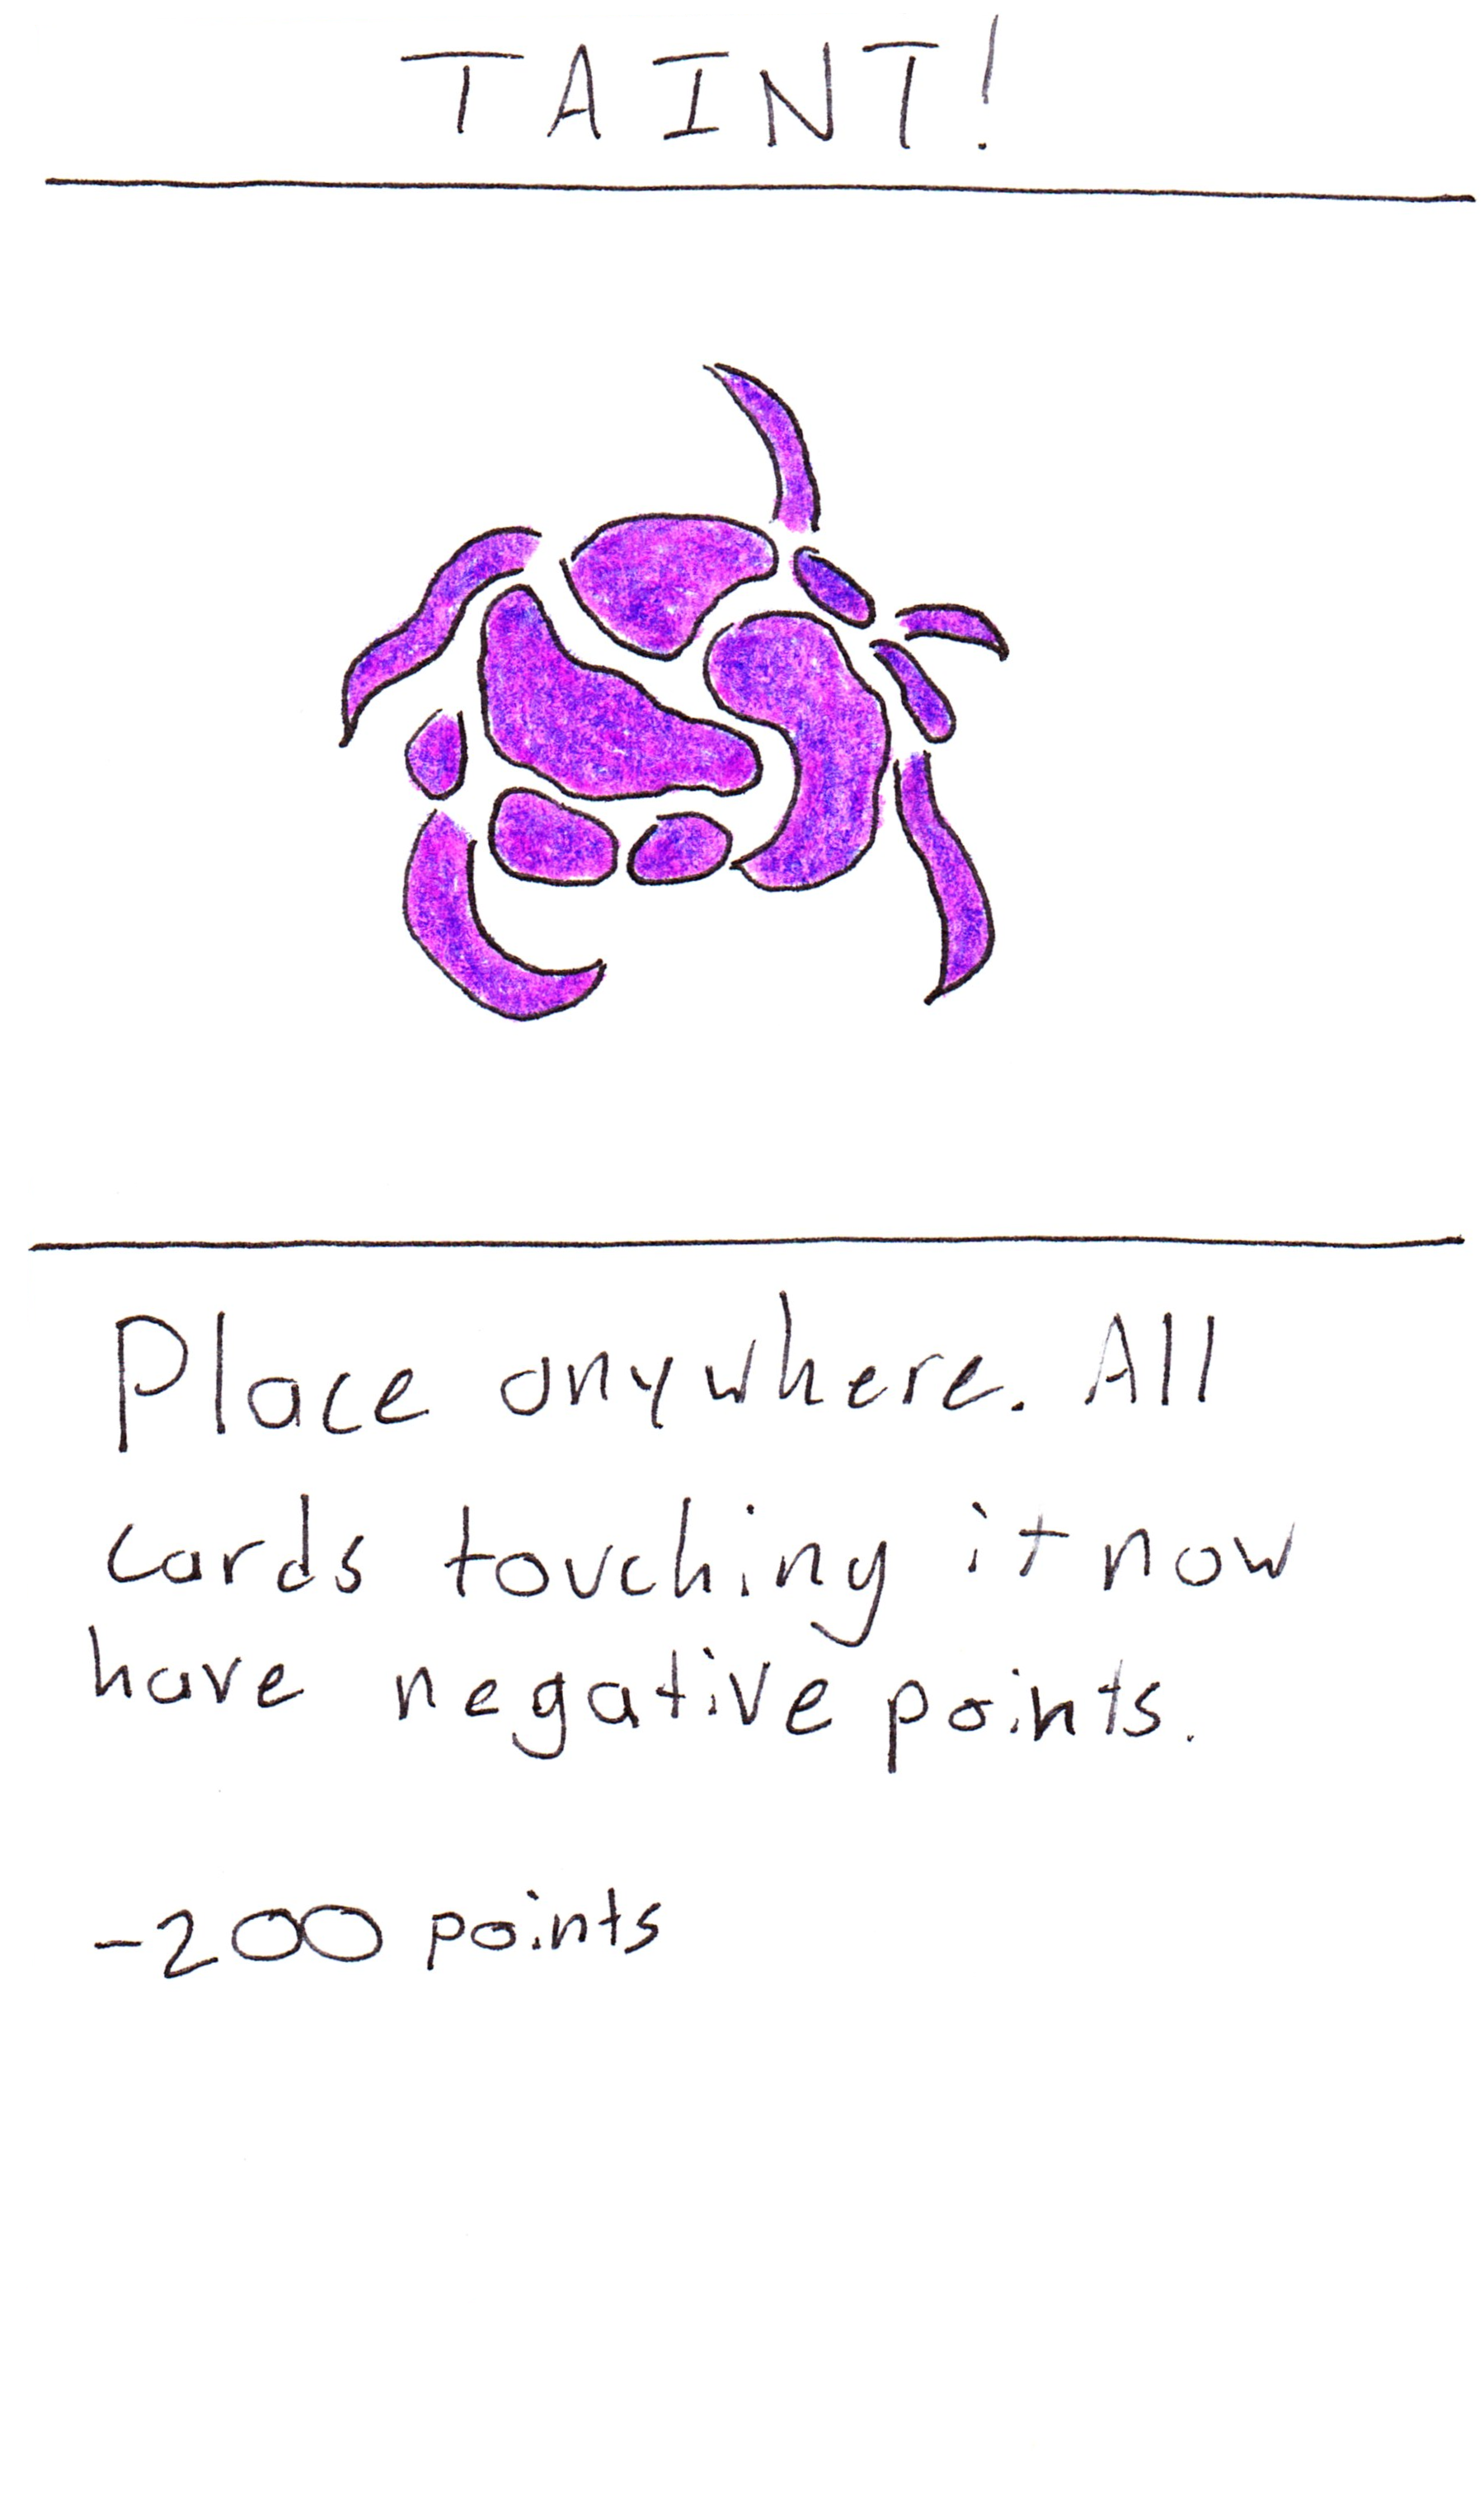 TAINT!
Place anywhere. All
cards touching it now
have negative points.
-200 points